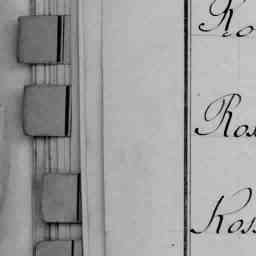 Ko
Ros
Koss